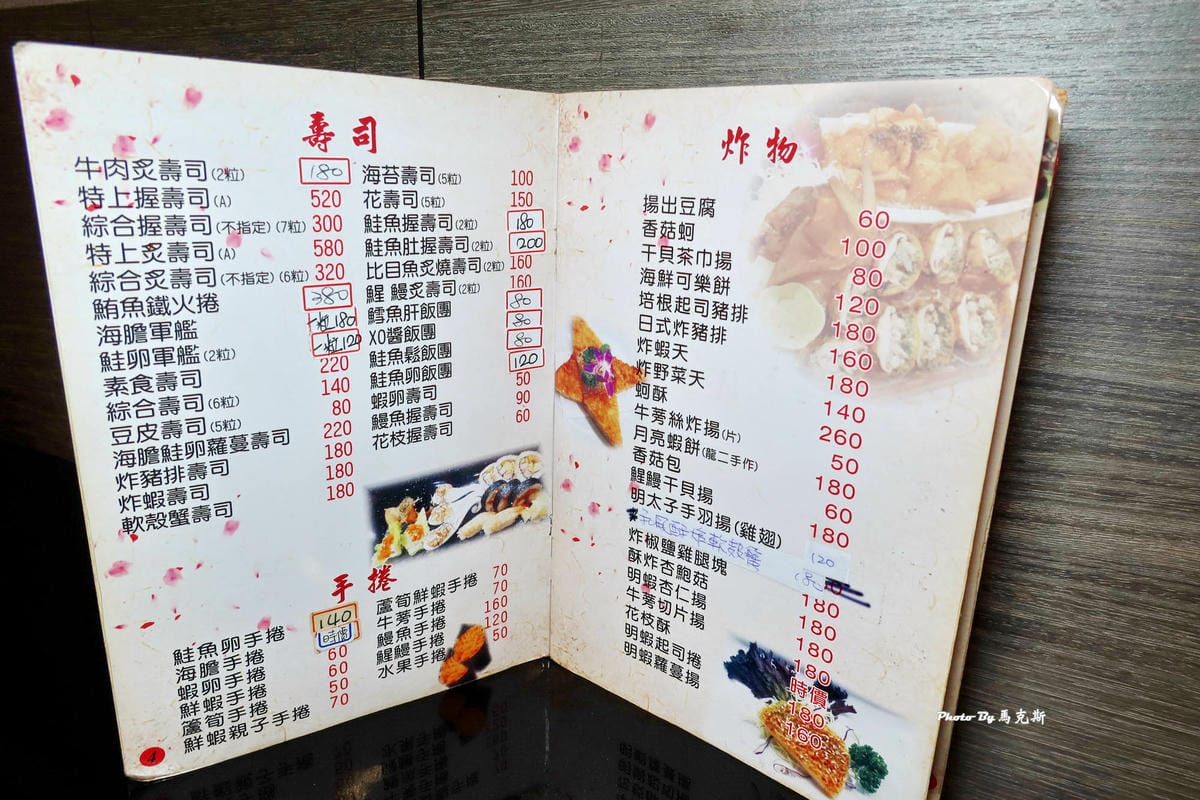 壽司
牛肉炙壽司(2粒) 180
特上握壽司(A) 520
綜合握壽司(不指定)(7粒) 300
特上炙壽司(A) 580
綜合炙壽司(不指定)(6粒) 320
鮪魚鐵火捲 380
海膽軍艦 一粒180
鮭卵軍艦(2粒) 一粒120
素食壽司 220
綜合壽司(6粒) 140
豆皮壽司(5粒) 80
海膽鮭卵蘿蔓壽司 220
炸豬排壽司 180
炸蝦壽司 180
軟殼蟹壽司 180
海苔壽司(5粒) 100
花壽司(5粒) 150
鮭魚握壽司(2粒) 180
鮭魚肚握壽司(2粒) 200
比目魚炙燒壽司(2粒) 160
鯹鰻炙壽司(2粒) 160
鱈魚肝飯團 80
XO醬飯團 80
鮭魚鬆飯團 80
鮭魚卵飯團 120
蝦卵壽司 50
鰻魚握壽司 90
花枝握壽司 60
手捲
鮭魚卵手捲 140
海膽手捲 時價
蝦卵手捲 60
鮮蝦手捲 60
蘆筍手捲 50
鮮蝦親子手捲 70
蘆筍鮮蝦手捲 70
牛蒡手捲 70
鰻魚手捲 160
鯹鰻手捲 120
水果手捲 50
4
炸物
揚出豆腐 60
香菇蚵 100
干貝茶巾揚 80
海鮮可樂餅 120
培根起司豬排 180
日式炸豬排 160
炸蝦天 180
炸野菜天 140
蚵酥 260
牛蒡絲炸揚(片) 50
月亮蝦餅(龍二手作) 180
香菇包 60
鯹鰻干貝揚 180
明太子手羽揚(雞翅) 120
軟殼蟹 180
炸椒鹽雞腿塊 180
酥炸杏鮑菇 180
明蝦杏仁揚 180
牛蒡切片揚 180
花枝酥 時價
明蝦起司捲 180
明蝦蘿蔓揚 160
Photo By 馬克斯